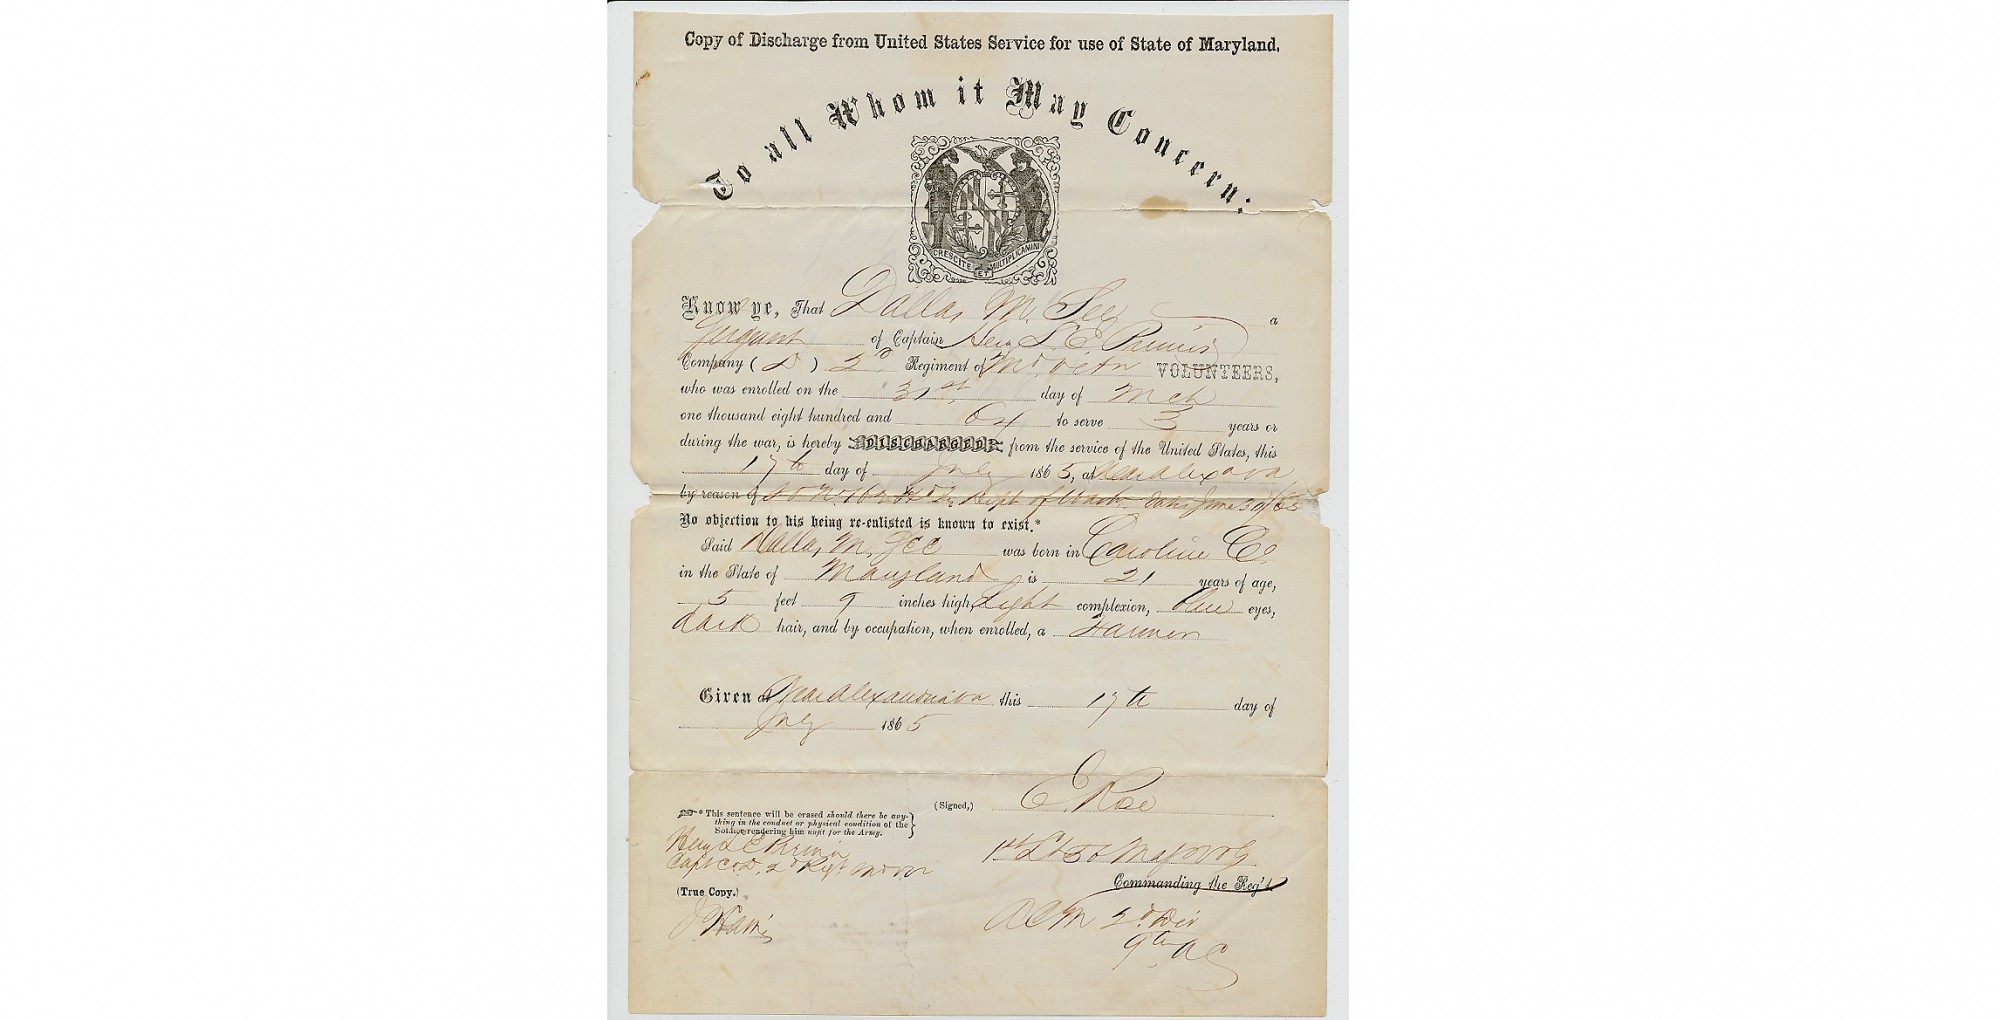 Copy of Discharge from United States Service for use of State of Maryland.
To all Whom it May Concern:
CRESCITE ET MULTIPLICAMINI
Know ye, That Dallas M. a
Sergeant of Captain Benj L. E.
Company ( D ) 2d Regiment of Md VOLUNTEERS,
who was enrolled on the 31st day of Mch
one thousand eight hundred and 64 to serve 3 years or
during the war, is hereby DISCHARGED from the service of the United States, this
17th day of July 1865, at Near Alex a Va
by reason of Dept of Wash. June 30/65
No objection to his being re-enlisted is known to exist.*
Said Dallas M. was born in Caroline Co
in the State of Maryland is 21 years of age,
5 feet 9 inches high, Light complexion, Blue eyes,
dark hair, and by occupation, when enrolled, a Farmer
Given at Near Alexandria Va this 17th day of
July 1865
(Signed,) E. Rose
* This sentence will be erased should there be any-
thing in the conduct or physical condition of the
Soldier rendering him unfit for the Army.
Benj L E
Capt Co D, 2d Regt
1st Lt 56 Mass Vols
Commanding the Reg't.
(True Copy.)
A C M 2d Div
9th A C